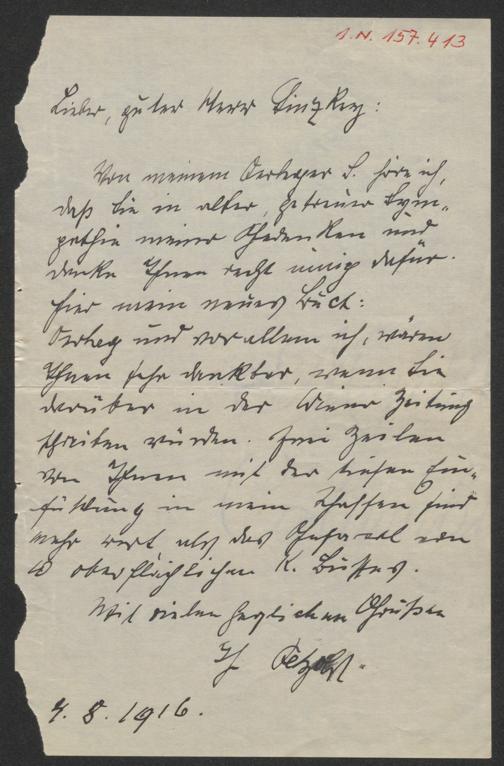 I.N. 157.413
Lieber, guter Herr
Von meinem Verleger S. höre ich,
daß Sie in alter, getreuer Sym-
pathie meiner Gedenken und
danke Ihnen recht innig dafür.
Hier mein neues Buch:
Verlag und vor allem ich, wären
Ihnen sehr dankbar, wenn Sie
darüber in der Wiener Zeitung
schreiben würden. Zwei Zeilen
von Ihnen mit der tiefen Ein-
fühlung in mein Schaffen sind
mehr wert als das von
10 oberflächlichen K. Busses.
Mit vielen herzlichen Grüßen
Ihr Petzold.
4. 8. 1916.